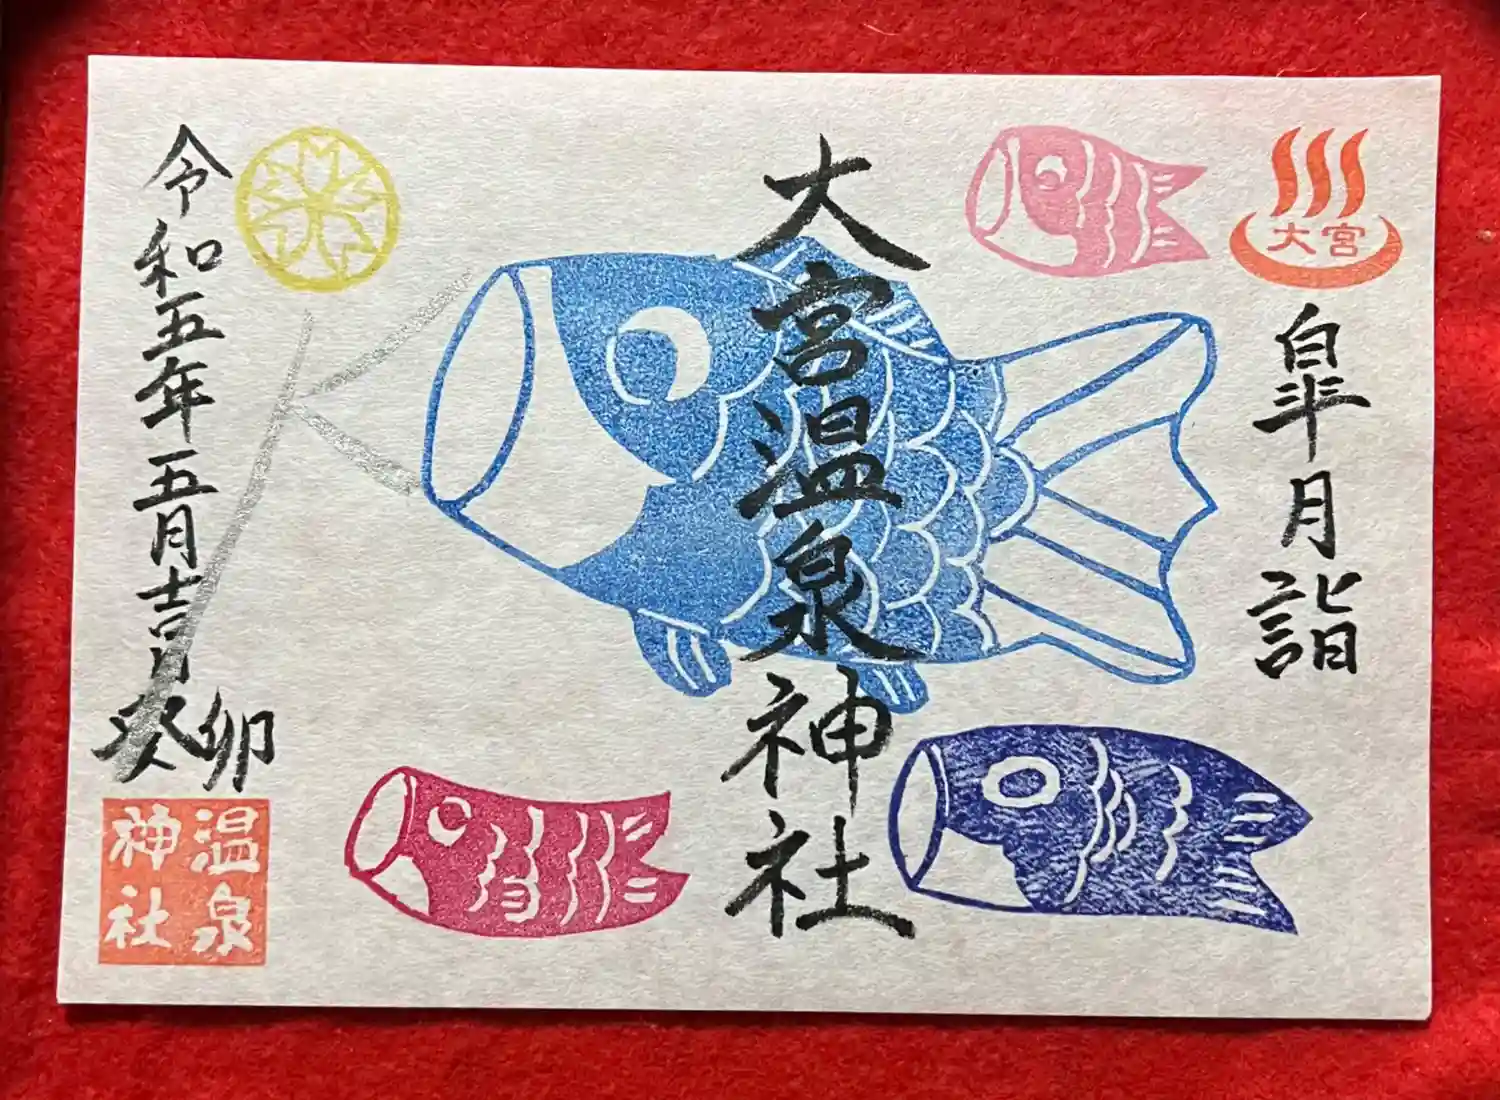 大宮
皐月詣
大宮温泉神社
令和五年五月
癸卯
温泉
神社